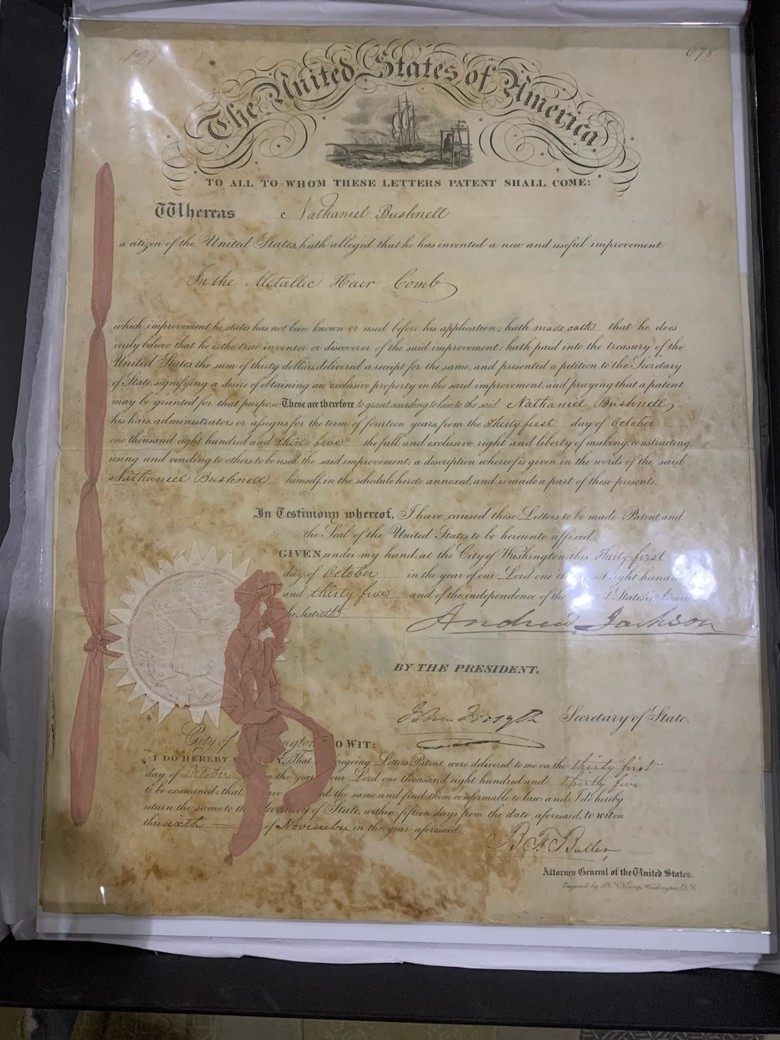 078
The United States of America
TO ALL TO WHOM THESE LETTERS PATENT SHALL COME:
Whereas Nathaniel Bushnell
a citizen of the United States, hath alleged that he has invented a new and useful improvement
In the Metallic Hair Comb
which improvement he states has not been known or used before his application; hath made oath that he does
verily believe that he is the true inventor or discoverer of the said improvement; hath paid into the treasury of the
United States the sum of thirty dollars, delivered a receipt for the same, and presented a petition to the Secretary
of State, signifying a desire of obtaining an exclusive property in the said improvement, and praying that a patent
may be granted for that purpose. These are therefore to grant, according to law, to the said Nathaniel Bushnell,
his heirs, administrators or assigns, for the term of fourteen years, from the thirty first day of October
one thousand eight hundred and thirty five the full and exclusive right and liberty of making, constructing,
using and vending to others to be used, the said improvement; a description whereof is given in the words of the said
Nathaniel Bushnell himself, in the schedule hereto annexed, and is made a part of these presents.
In Testimony whereof, I have caused these Letters to be made Patent, and
the Seal of the United States to be hereunto affixed.
GIVEN under my hand, at the City of Washington, this thirty first
day of October in the year of our Lord one
and thirty five and of the independence of the
the Sixtieth
Andrew Jackson
BY THE PRESIDENT.
John Forsyth Secretary of State.
City of TO WIT:
I DO HEREBY That Letters Patent were delivered to me on the thirty first
day of October in the year our Lord one thousand eight hundred and thirty five
to be examined; that the same, and find them conformable to law; and I do hereby
return the same to the of State, within fifteen days from the date aforesaid, to wit: on
this sixth of November in the year aforesaid.
B F Butler
Attorney General of the United States.
Engraved by Washington